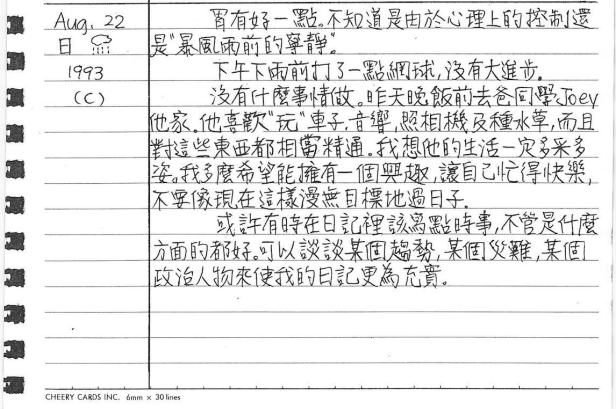 Aug. 22
日
1993
(C)
胃有好一點。不知道是由於心理上的控制還
是"暴風雨前的寧靜"。
下午下雨前打了一點網球，沒有大進步。
沒有什麼事情做。昨天晚飯前去爸同學Joey
他家。他喜歡"玩"車子，音響，照相機及種水草，而且
對這些東西都相當精通。我想他的生活一定多采多
姿。我多麼希望能擁有一個興趣，讓自己忙得快樂，
不要像現在這樣漫無目標地過日子。
或許有時在日記裡該寫點時事，不管是什麼
方面的都好。可以談談某個趨勢，某個災難，某個
政治人物來使我的日記更為充實。
CHEERY CARDS INC. 6mm × 30 lines